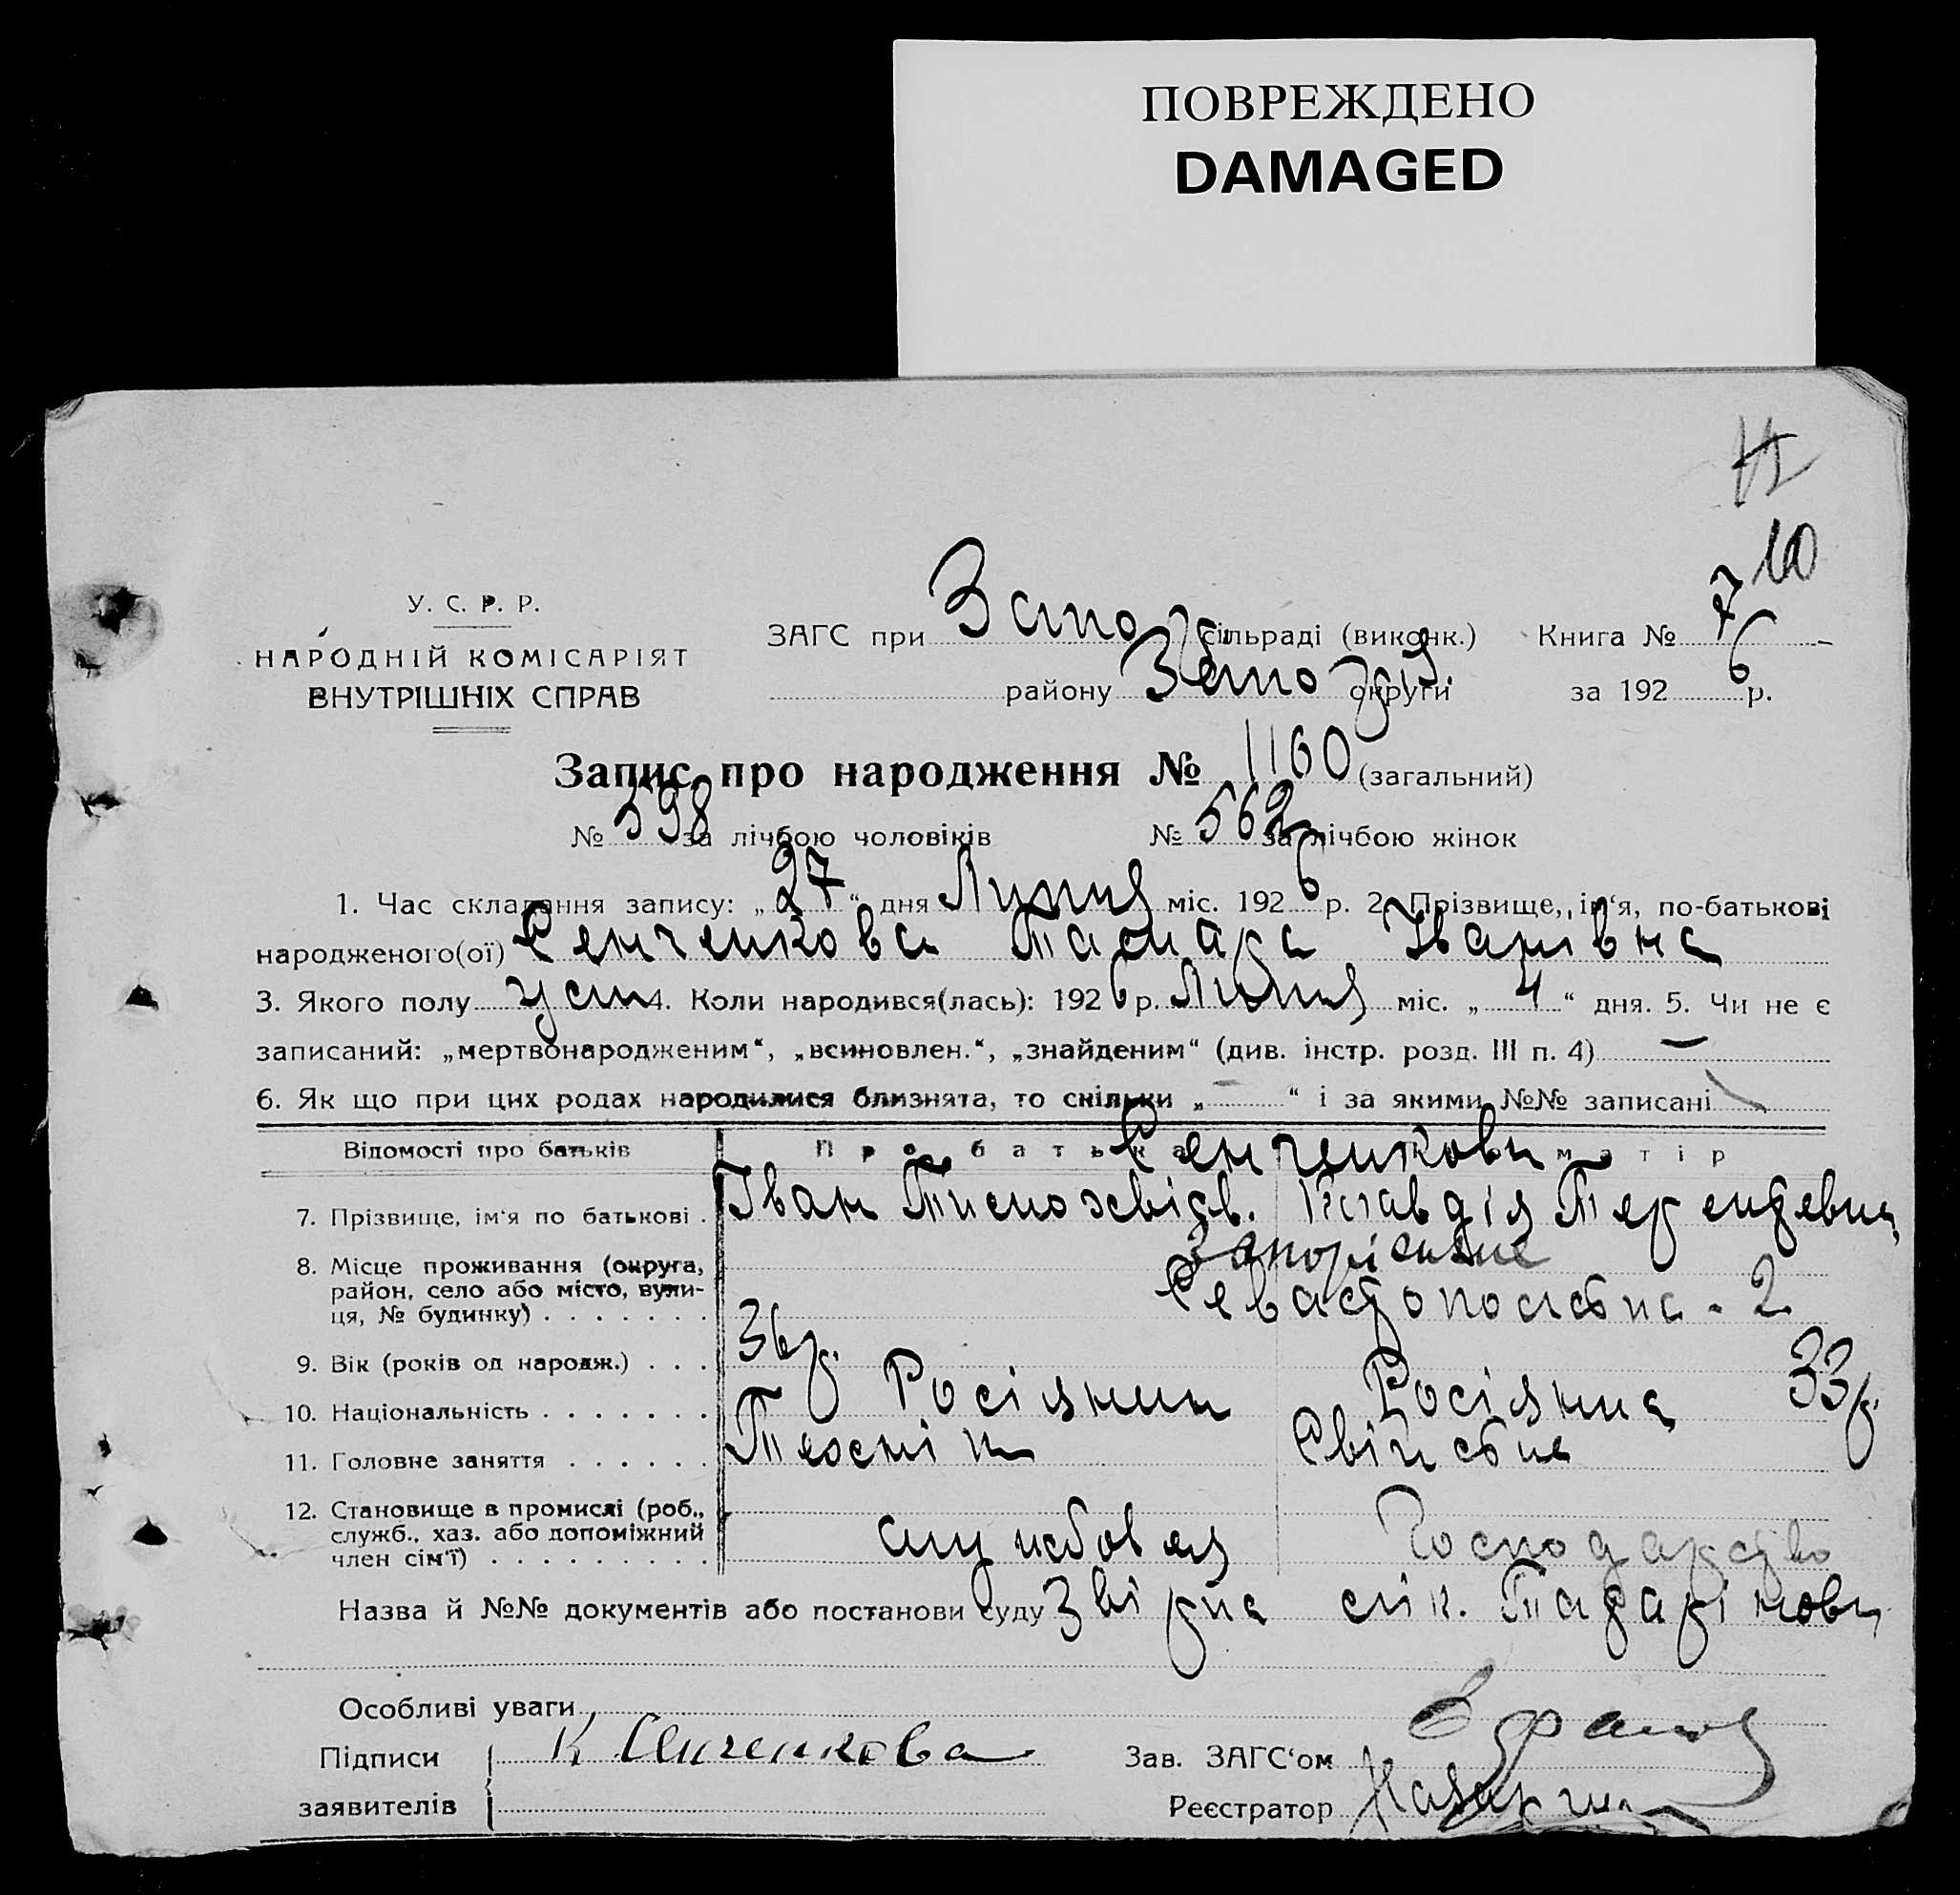 ПОВРЕЖДЕНО
DAMAGED
10
У. С. Р. Р.
НАРОДНІЙ КОМІСАРІЯТ
ВНУТРІШНІХ СПРАВ
ЗАГС при Запоріз сільраді (виконк.) Книга № 7
району Запорізьк. округи за 1926 р.
Запис про народження № 1160 (загальний)
№ 598 за лічбою чоловіків № 562 за лічбою жінок
1. Час складання запису: „27“ дня Липня міс. 1926 р. 2. Прізвище, ім‘я, по-батькові
народженого(ої) Сенченкова Тамара Іванівна
3. Якого полу жін 4. Коли народився(лась): 1926 р. Липня міс. „4“ дня. 5. Чи не є
записаний: „мертвонародженим“, „всиновлен.“, „знайденим“ (див. інстр. розд. III п. 4) —
6. Як що при цих родах народилися близнята, то скільки „—“ і за якими №№ записані
Відомості про батьків Про батька Сенченкови матір
7. Прізвище, ім‘я по батькові . Іван Тимохвієв. Клавдія Терентевна
8. Місце проживання (округа, район, село або місто, вулиця, № будинку) . . . . . . . Запоріжже
Севастопольська - 2
9. Вік (років од народж.) . . . 36 р. 33 р.
10. Національність . . . . . . . Росіянин Росіянка
11. Головне заняття . . . . . . Технік Свійське
12. Становище в промислі (роб., служб., хаз. або допоміжний член сім‘ї) . . . . . . . . . службовец Господарство
Назва й №№ документів або постанови суду Звірка лік. Татарінови
Особливі уваги
Підписи К Сенченкова Зав. ЗАГС‘ом
заявителів Реєстратор